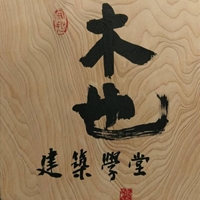 木也
建築學堂